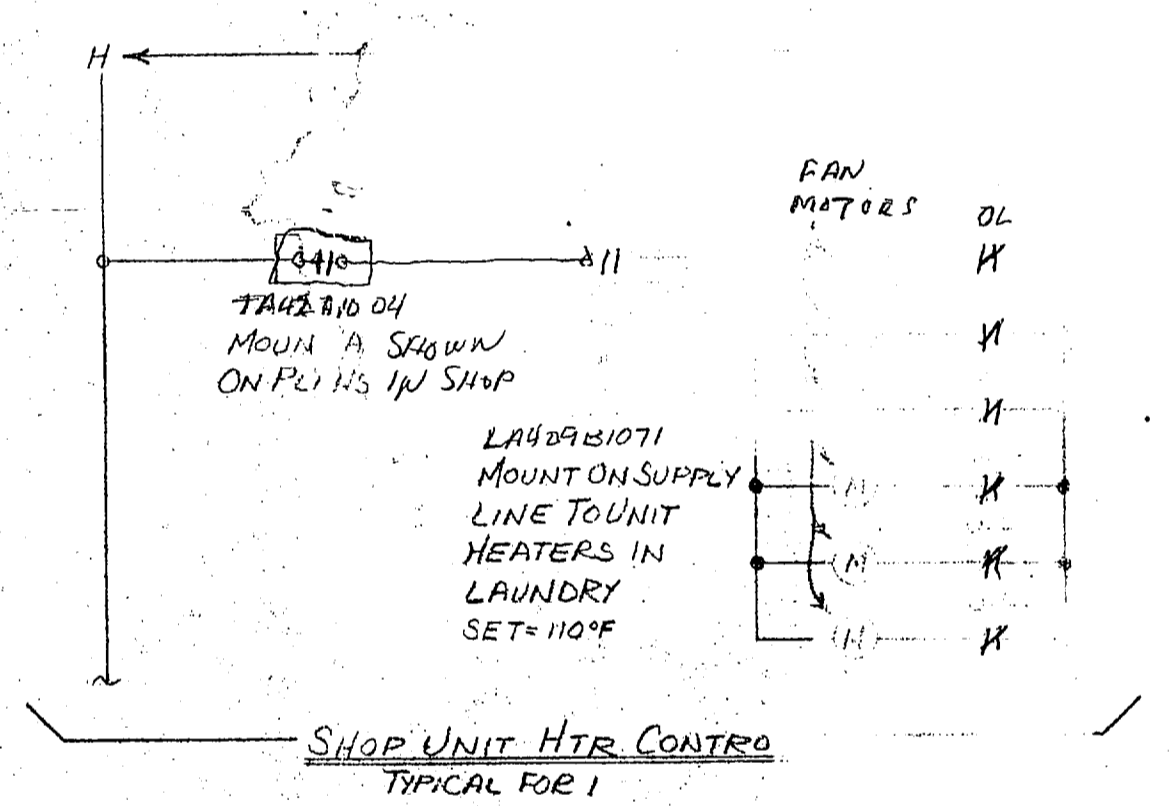 H
FAN
MOTORS
OL
11
MOUN A SHOWN
ON PL NS IN SHOP
LA409B1071
MOUNT ON SUPPLY
LINE TO UNIT
HEATERS IN
LAUNDRY
SET= 110°F
M
M
M
SHOP UNIT HTR CONTRO
TYPICAL FOR 1